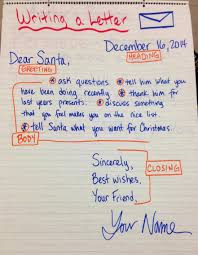 Writing a Letter
December 16, 2014
HEADING
Dear Santa,
GREETING
ask questions. tell him what you
have been doing recently. thank him for
last years presents. discuss something
that you feel makes you on the nice list
tell Santa what you want for Christmas.
BODY
Sincerely,
Best wishes,
Your Friend,
CLOSING
Your Name